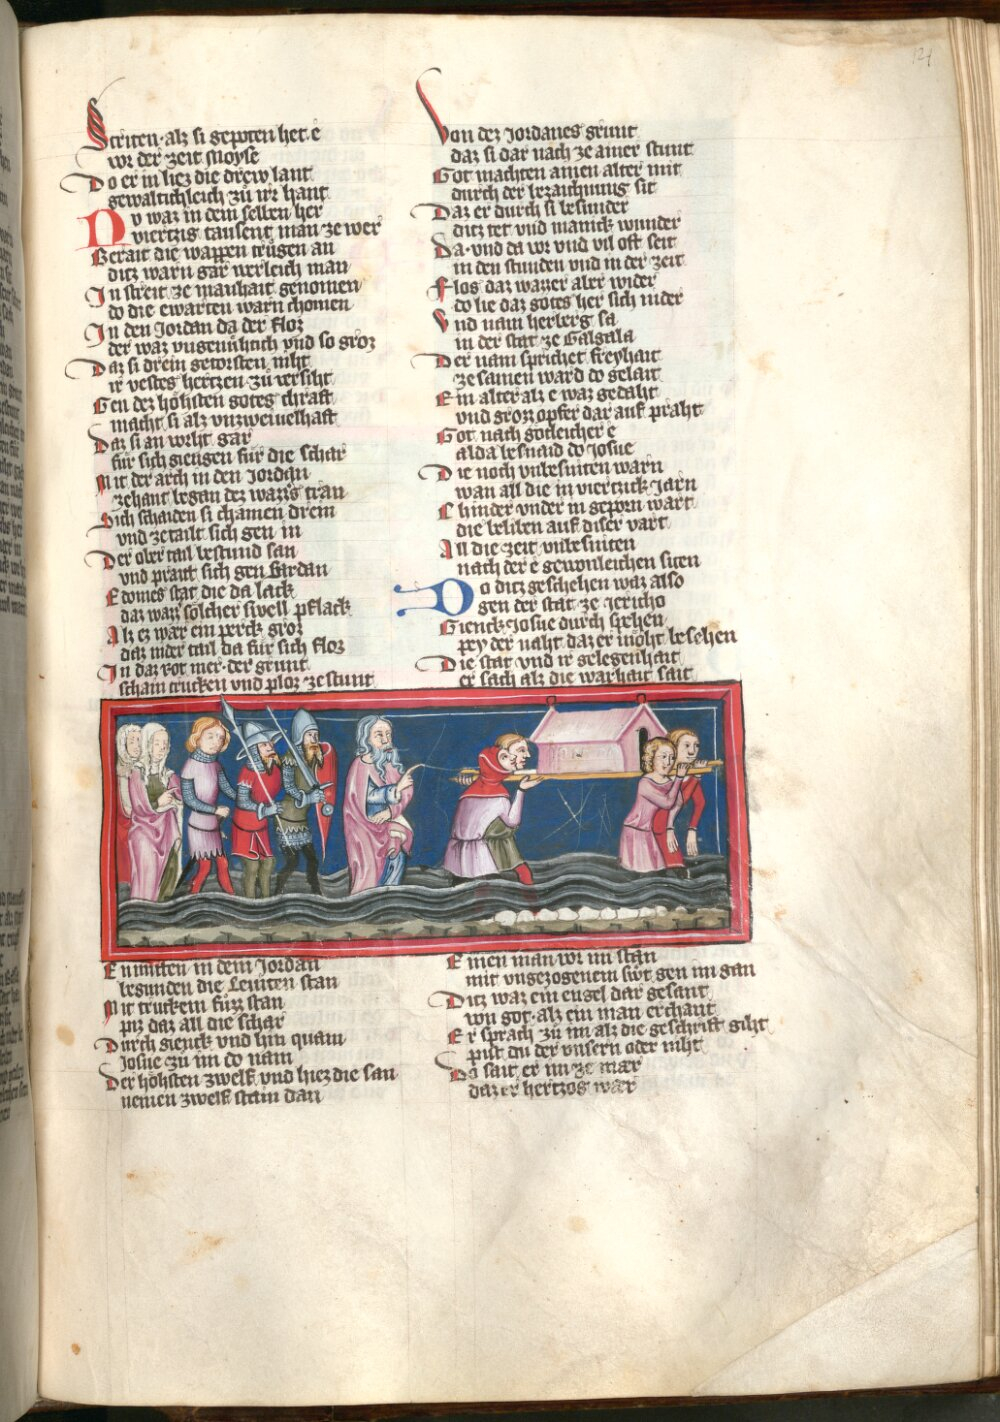 121
Striten · alz si gepoten het e
vor der zeit moyse
Do er in liez die drew lant
gewaltichleich zu ir hant
Nv waz in dem selben her
viertzig tausent man ze wer
Berait die wappen trugen an
ditz warn gar werleich man
In streit ze manhait genomen
do die ewarten warn chomen
In den Jordan da der floz
der waz vngewnlich vnd so groz
Daz si drein getorsten niht
ir vestes hertzen zu versiht
Gen dez hohsten gotes chraft
macht si als vnzweiuelhaft
Daz si an vorht gar
fur sich giengen fur die schar
Mit der arch in den Jordan
zehant began dez wazzers tran
Sich schaiden si chamen drein
vnd zetailt sich gen in
Der ober tail bestund san
vnd prait sich gen Sardan
Edomes stat die da lack
daz waz solcher swell pflack
Alz ez wer ein perck groz
daz nider tail da fur sich floz
In daz rot mer · der grunt
schain trucken vnd ploz ze stunt
Enmitten in dem Jordan
begunden die Leuiten stan
Mit truckem fuzz stan
piz daz all die schar
Durch gienck vnd hin quam
Josue zu im do nam
Der hohsten zwelf vnd hiez die san
nemen zwelf stain dan
Von dez Jordanes grunt
daz si dar nach ze ainer stunt
Got machten ainen alter mit
durch der bezaichnung sit
Daz er durch si besunder
ditz tet vnd manick wunder
Da · vnd da vor vnd vil oft seit
in den stunden vnd in der zeit
Floz daz wazzer aber wider
do lie daz gotes her sich nider
Vnd nam herberg sa
in der stat ze Galgala
Der nam sprichet freyhait
ze samen ward do gelait
Ein alter alz e waz gedaht
vnd grozz opfer dar auf praht
Got nach gotleicher e
alda besnaid do Josue
Die noch vnbesniten warn
wan all die in viertzick Jarn
Chinder vnder in geporn wart
die beliben auf diser vart
All die zeit vnbesniten
nach der e gewonleichen siten
Do ditz geschehen waz also
gen der stat ze Jericho
Gienck Josue durch spehen
pey der naht daz er moht besehen
Die stat vnd ir gelegenhait
er sach alz die warhait sait
Einen man vor im stan
mit vngezogenem swert gen im gan
Ditz waz ein engel dar gesant
von got · alz ein man erchant
Er sprach zu im alz die geschrift giht
pist du der vnsern oder niht
Do sait er im ze mer
daz er hertzog wer